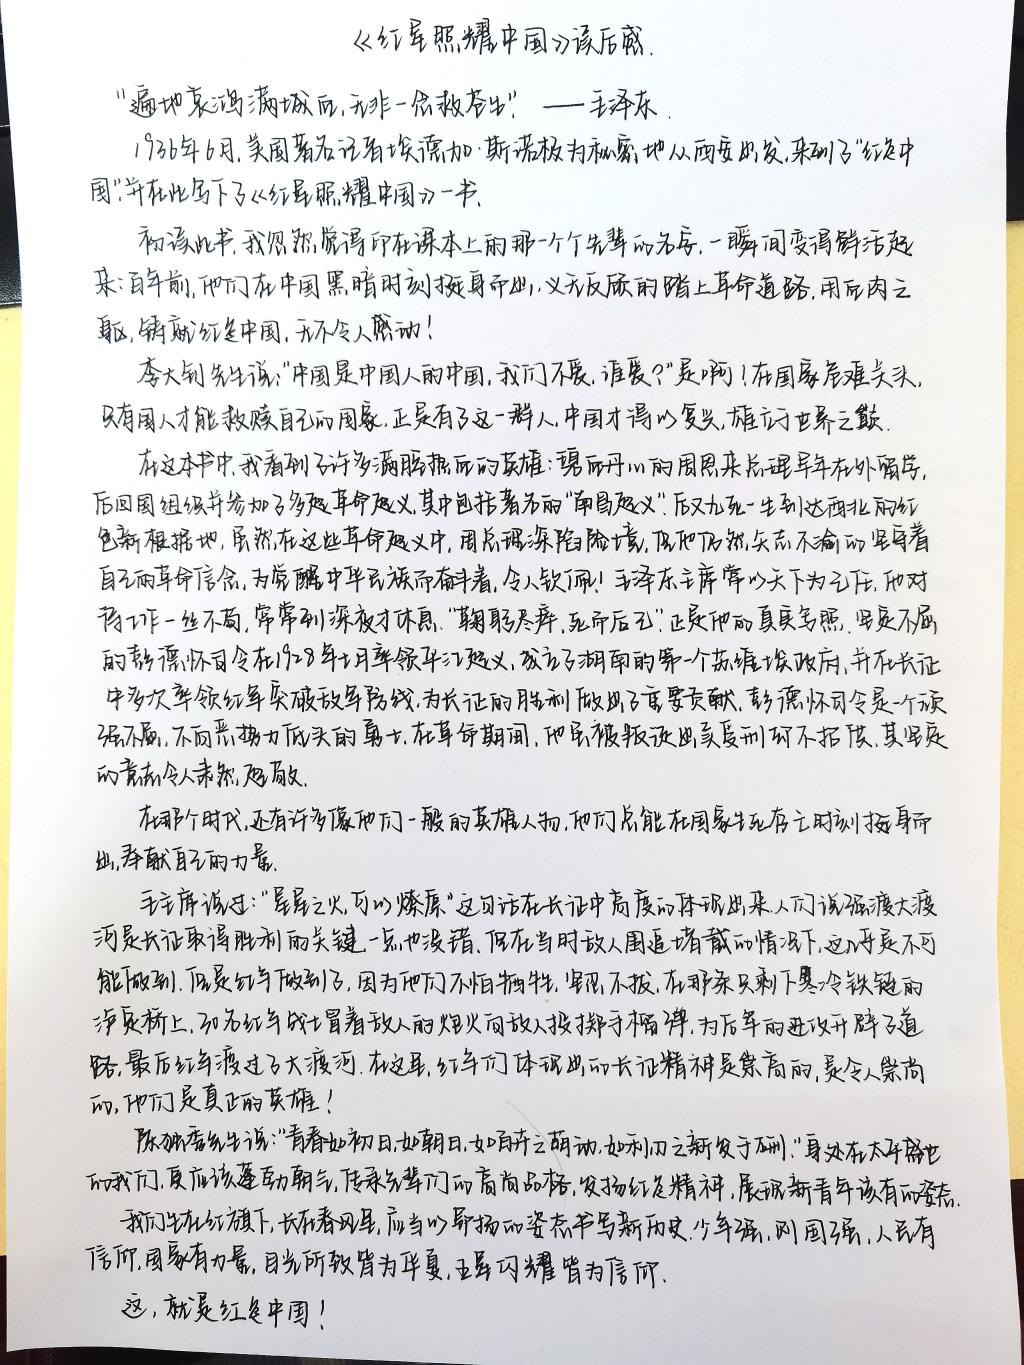 《红星照耀中国》读后感.
"遍地哀鸿满城血,无非一念救苍生". ——毛泽东.
1936年6月,美国著名记者埃德加·斯诺极为秘密地从西安出发,来到了"红色中
国",并在此写下了《红星照耀中国》一书.
初读此书,我忽然觉得印在课本上的那一个个先辈的名字,一瞬间变得鲜活起
来:百年前,他们在中国黑暗时刻挺身而出,义无反顾的踏上革命道路,用血肉之
躯,铸就红色中国,无不令人感动!
李大钊先生说:"中国是中国人的中国,我们不爱,谁爱?"是啊!在国家危难关头,
只有国人才能救赎自己的国家,正是有了这一群人,中国才得以复兴,雄立于世界之巅.
在这本书中,我看到了许多满腔热血的英雄:碧血丹心的周恩来总理早年在外留学,
后回国组织并参加了多起革命起义,其中包括著名的"南昌起义".后又九死一生到达西北的红
色新根据地,虽然在这些革命起义中,周总理深陷险境,但他仍然矢志不渝的坚守着
自己的革命信念,为觉醒中华民族而奋斗着,令人钦佩!毛泽东主席常以天下为己任,他对
待工作一丝不苟,常常到深夜才休息."鞠躬尽瘁,死而后已".正是他的真实写照.坚定不屈
的彭德怀司令在1928年七月率领平江起义,成立了湖南的第一个苏维埃政府,并在长征
中多次率领红军突破敌军防线,为长征的胜利做出了重要贡献,彭德怀司令是一个顽
强不屈,不向恶势力低头的勇士,在革命期间,他虽被叛徒出卖受刑却不招供,其坚定
的意志令人肃然起敬.
在那个时代,还有许多像他们一般的英雄人物,他们总能在国家生死存亡时刻挺身而
出,奉献自己的力量.
毛主席说过:"星星之火,可以燎原"这句话在长征中高度的体现出来.人们说强渡大渡
河是长征取得胜利的关键一点也没错,但在当时敌人围追堵截的情况下,这几乎是不可
能做到.但是红军做到了,因为他们不怕牺牲,坚忍不拔,在那条只剩下寒冷铁链的
泸定桥上,30名红军战士冒着敌人的炮火向敌人投掷手榴弹,为后军的进攻开辟了道
路,最后红军渡过了大渡河.在这里,红军们体现出的长征精神是崇高的,是令人崇尚
的,他们是真正的英雄!
陈独秀先生说:"青春如初日,如朝日,如百卉之萌动,如利刃之新发于硎."身处在太平盛世
的我们,更应该蓬勃朝气,传承先辈们的高尚品格,发扬红色精神,展现新青年该有的姿态.
我们生在红旗下,长在春风里,应当以昂扬的姿态书写新历史.少年强,则国强,人民有
信仰,国家有力量,目光所致皆为华夏,五星闪耀皆为信仰.
这,就是红色中国!